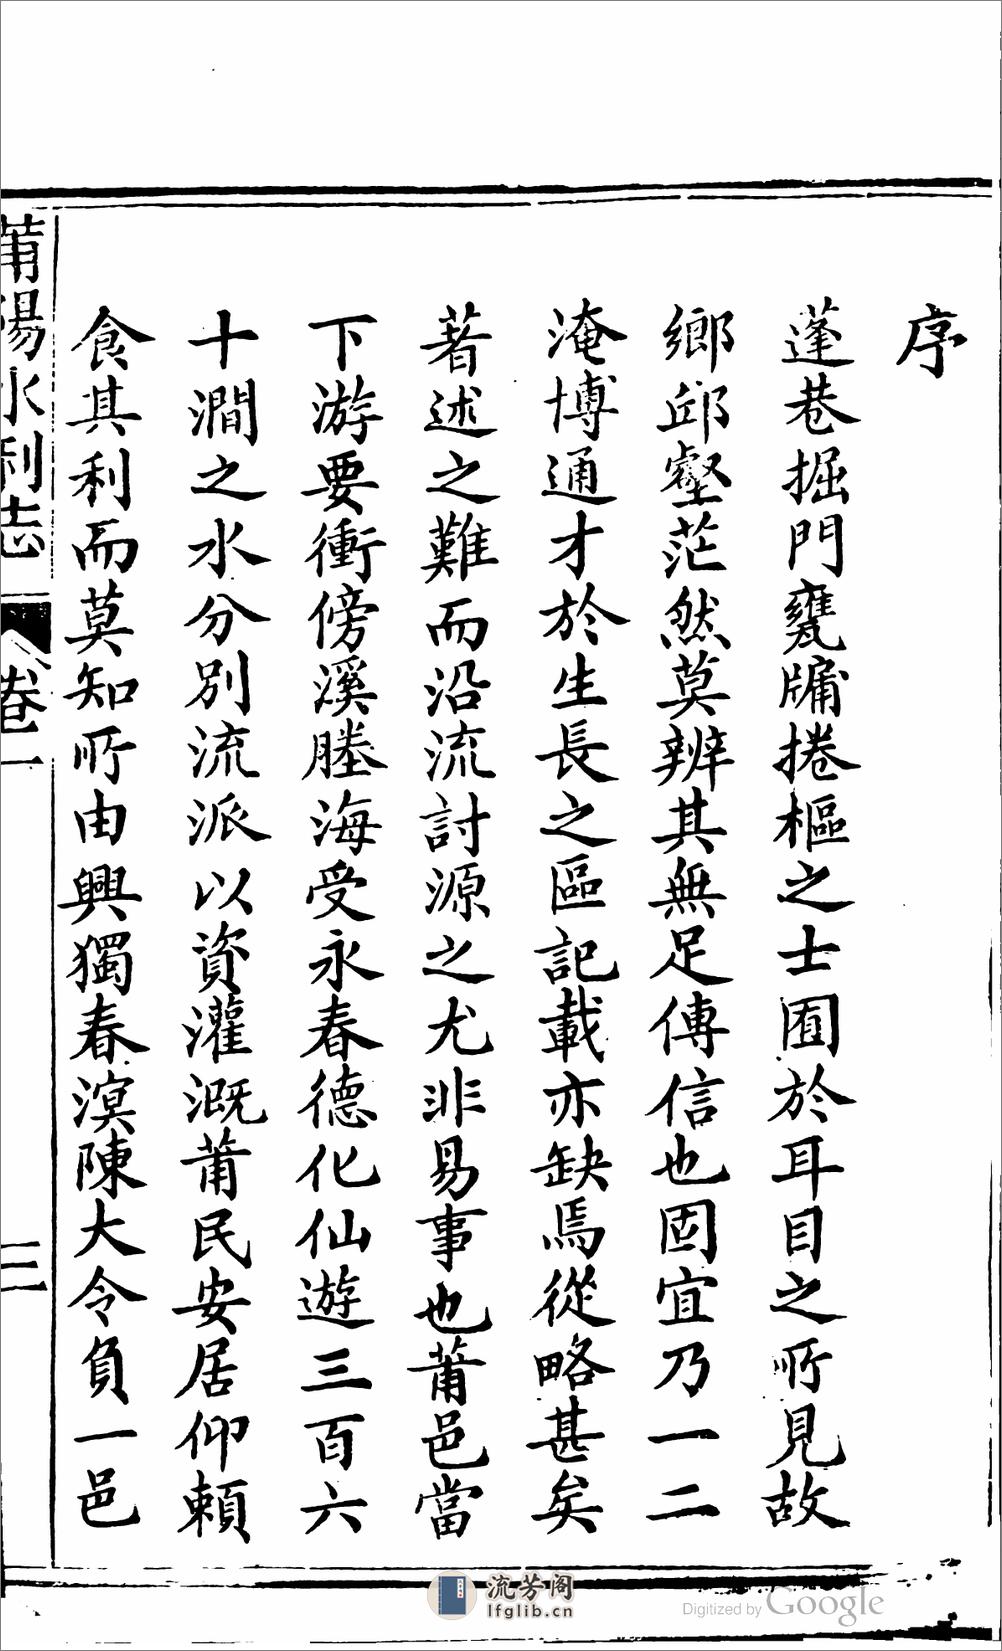 序
蓬巷掘門甕牖捲樞之士囿於耳目之所見故
鄉邱壑茫然莫辨其無足傳信也固宜乃一二
淹博通才於生長之區記載亦缺焉從略甚矣
著述之難而沿流討源之尤非易事也莆邑當
下游要衝傍溪塍海受永春德化仙遊三百六
十澗之水分別流派以資灌溉莆民安居仰賴
食其利而莫知所由興獨春溟陳大令負一邑
莆陽水利志 卷一 三
流芳阁
lfglib.cn
Digitized by Google